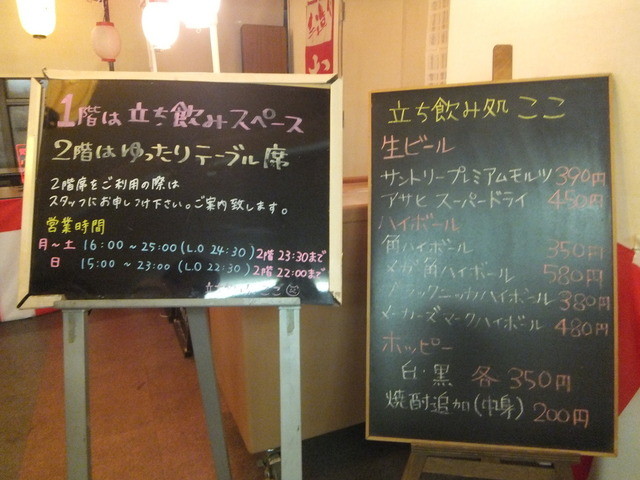 1階は立ち飲みスペース
2階はゆったりテーブル席
2階席をご利用の際は
スタッフにお申しつけ下さい。ご案内致します。
営業時間
月～土 16:00～25:00(L.O 24:30) 2階 23:30まで
日 15:00～23:00(L.O 22:30) 2階 22:00まで
ここ
立ち飲み処 ここ
生ビール
サントリープレミアムモルツ 390円
アサヒ スーパードライ 450円
ハイボール
角ハイボール 350円
メガ角ハイボール 580円
ブラックニッカハイボール 380円
メーカーズマークハイボール 480円
ホッピー
白・黒 各350円
焼酎追加(中身) 200円